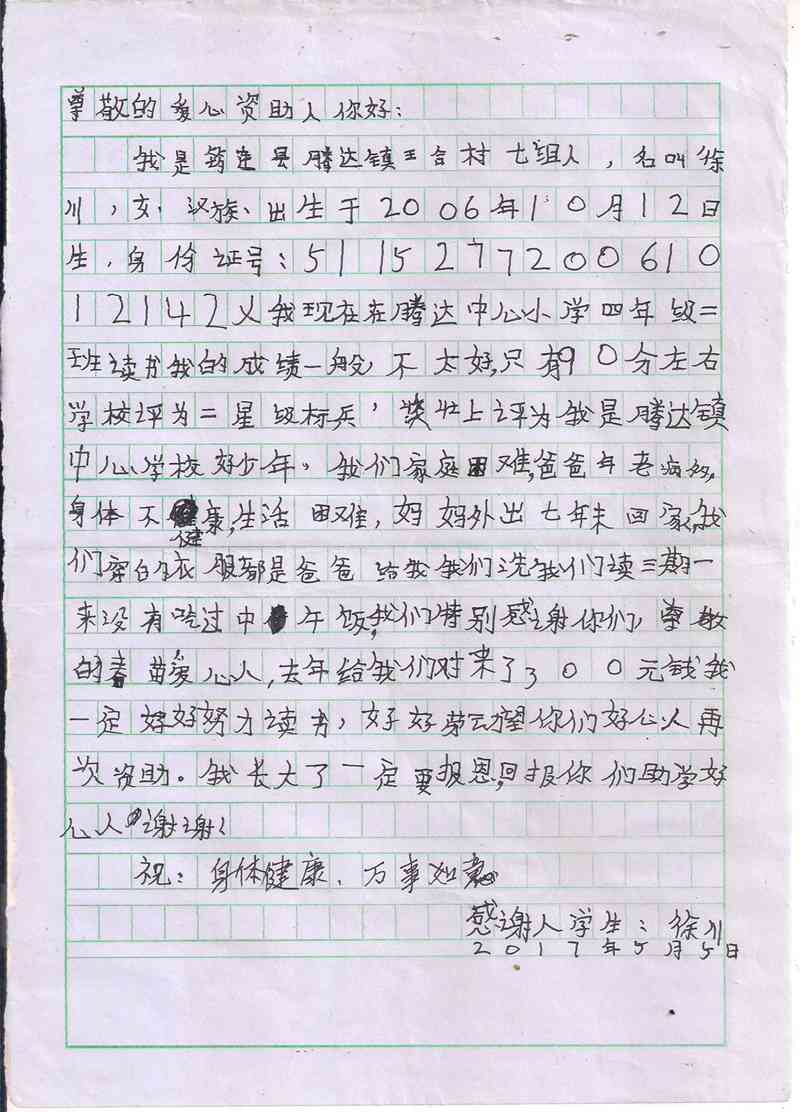 尊敬的爱心资助人你好：
我是筠连县腾达镇王合村七组人，名叫徐
川，女，汉族、出生于2006年10月12日
生，身份证号：5115277200610
12142义我现在在腾达中心小学四年级二
班读书我的成绩一般，不太好，只有90分左右
学校评为二星级标兵，奖状上评为我是腾达镇
中心学校好少年。我们家庭困难，爸爸年老病多，
身体不健康，生活困难，妈妈外出七年未回家，我
们穿的衣服都是爸爸给我我们洗我们读三期一
来没有吃过中午饭，我们特别感谢你们，尊敬
的春苗爱心人，去年给我们对来了300元钱我
一定好好努力读书，好好劳云望你们好心人再
次资助。我长大了一定要报恩，回报你们助学好
心人谢谢！
祝：身体健康、万事如意
感谢人学生：徐川
2017年5月5日